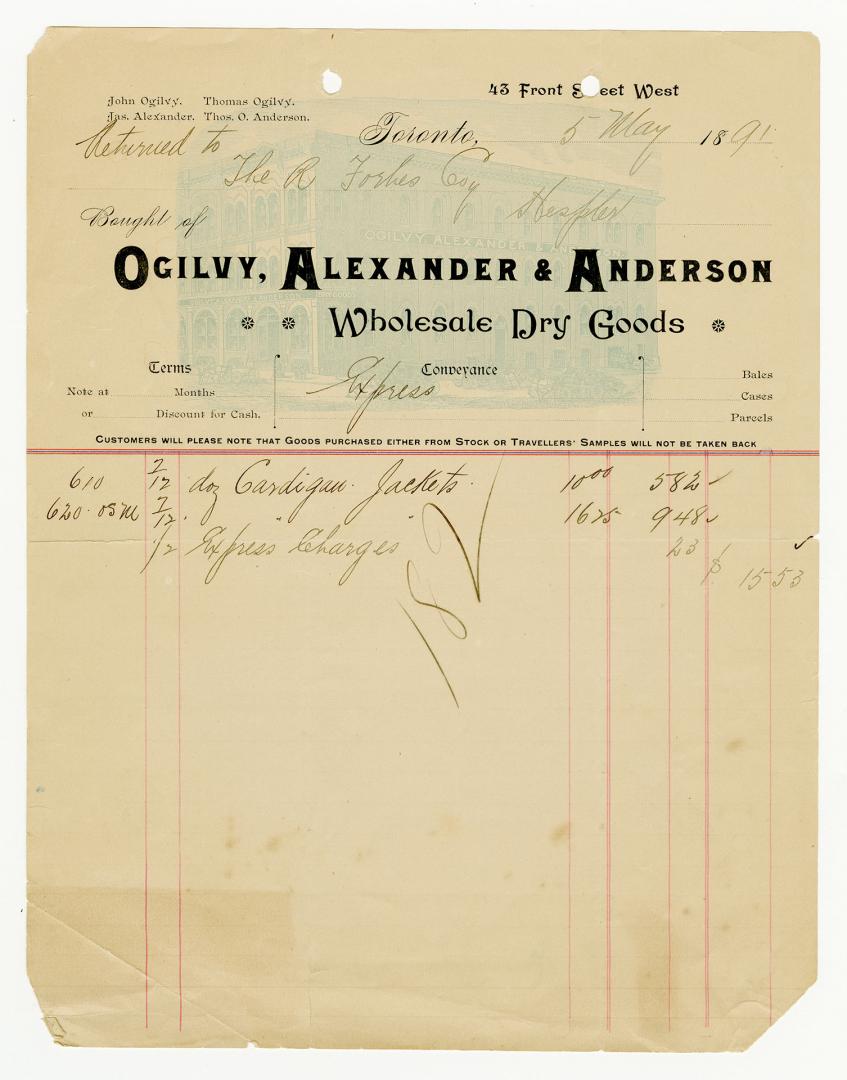 43 Front Street West
John Ogilvy. Thomas Ogilvy.
Jas. Alexander. Thos. O. Anderson.
Toronto, 5 May 1891
Returned to
The R Forbes Coy
Hespler
Bought of
OGILVY, ALEXANDER & ANDERSON
OGILVY ALEXANDER & ANDERSON
Wholesale Dry Goods
Terms Conveyance Bales
Note at Months Express Cases
or Discount for Cash. Parcels
CUSTOMERS WILL PLEASE NOTE THAT GOODS PURCHASED EITHER FROM STOCK OR TRAVELLERS' SAMPLES WILL NOT BE TAKEN BACK
610 7/12 doz Cardigan Jackets 10 00 5 82
620 OSM 7/12 " " 16 25 9 48
1/2 Express Charges 23
$ 15 53
182